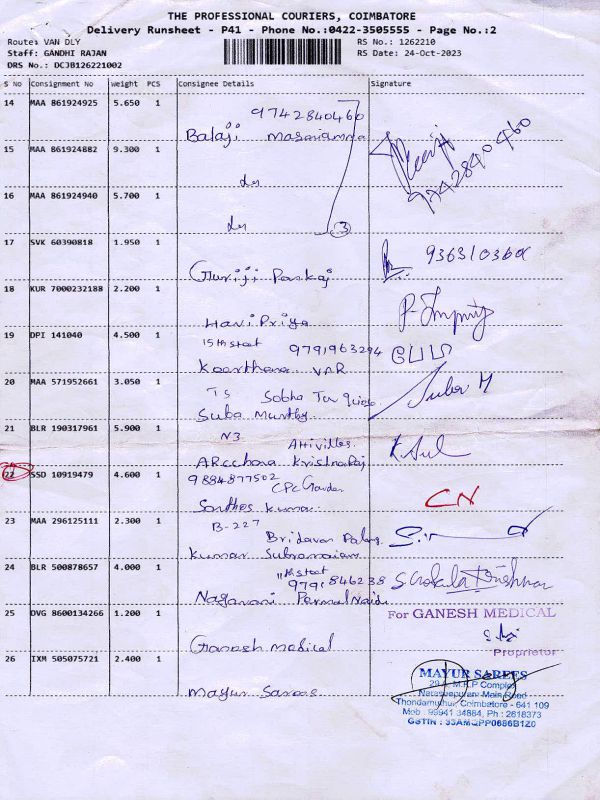 THE PROFESSIONAL COURIERS, COIMBATORE
Delivery Runsheet - P41 - Phone No.:0422-3505555 - Page No.:2
Route: VAN DLY
Staff: GANDHI RAJAN
DRS No.: DCJB126221002
RS No.: 1262210
RS Date: 24-Oct-2023
S No Consignment No Weight PCS Consignee Details Signature
14 MAA 861924925 5.650 1
9742840460
Balaji
15 MAA 861924882 9.300 1
9742840460
16 MAA 861924940 5.700 1
3
17 SVK 60390818 1.950 1
Guruji Pankaj
18 KUR 7000232188 2.200 1
Hari Priya
19 DPI 141040 4.500 1
15th street 9791963294
Keerthana
20 MAA 571952661 3.050 1
T5 Sobha
Suba Murthy
Suba M
21 BLR 190317961 5.900 1
N3
Archana Krishnaraj
22 SSD 10919479 4.600 1
9884877502 CPC Garden
Santhos Kumar
CN
23 MAA 296125111 2.300 1
B-227
Kumar
24 BLR 500878657 4.000 1
11th street
9791846238
25 DVG 8600134266 1.200 1
Ganash medical
For GANESH MEDICAL
Proprietor
26 IXM 505075721 2.400 1
Mayur Sarees
MAYUR SAREES
Naraseepuram Main Road
Thondamuthur, Coimbatore - 641 109
Mob : 99941 34884, Ph : 2618373